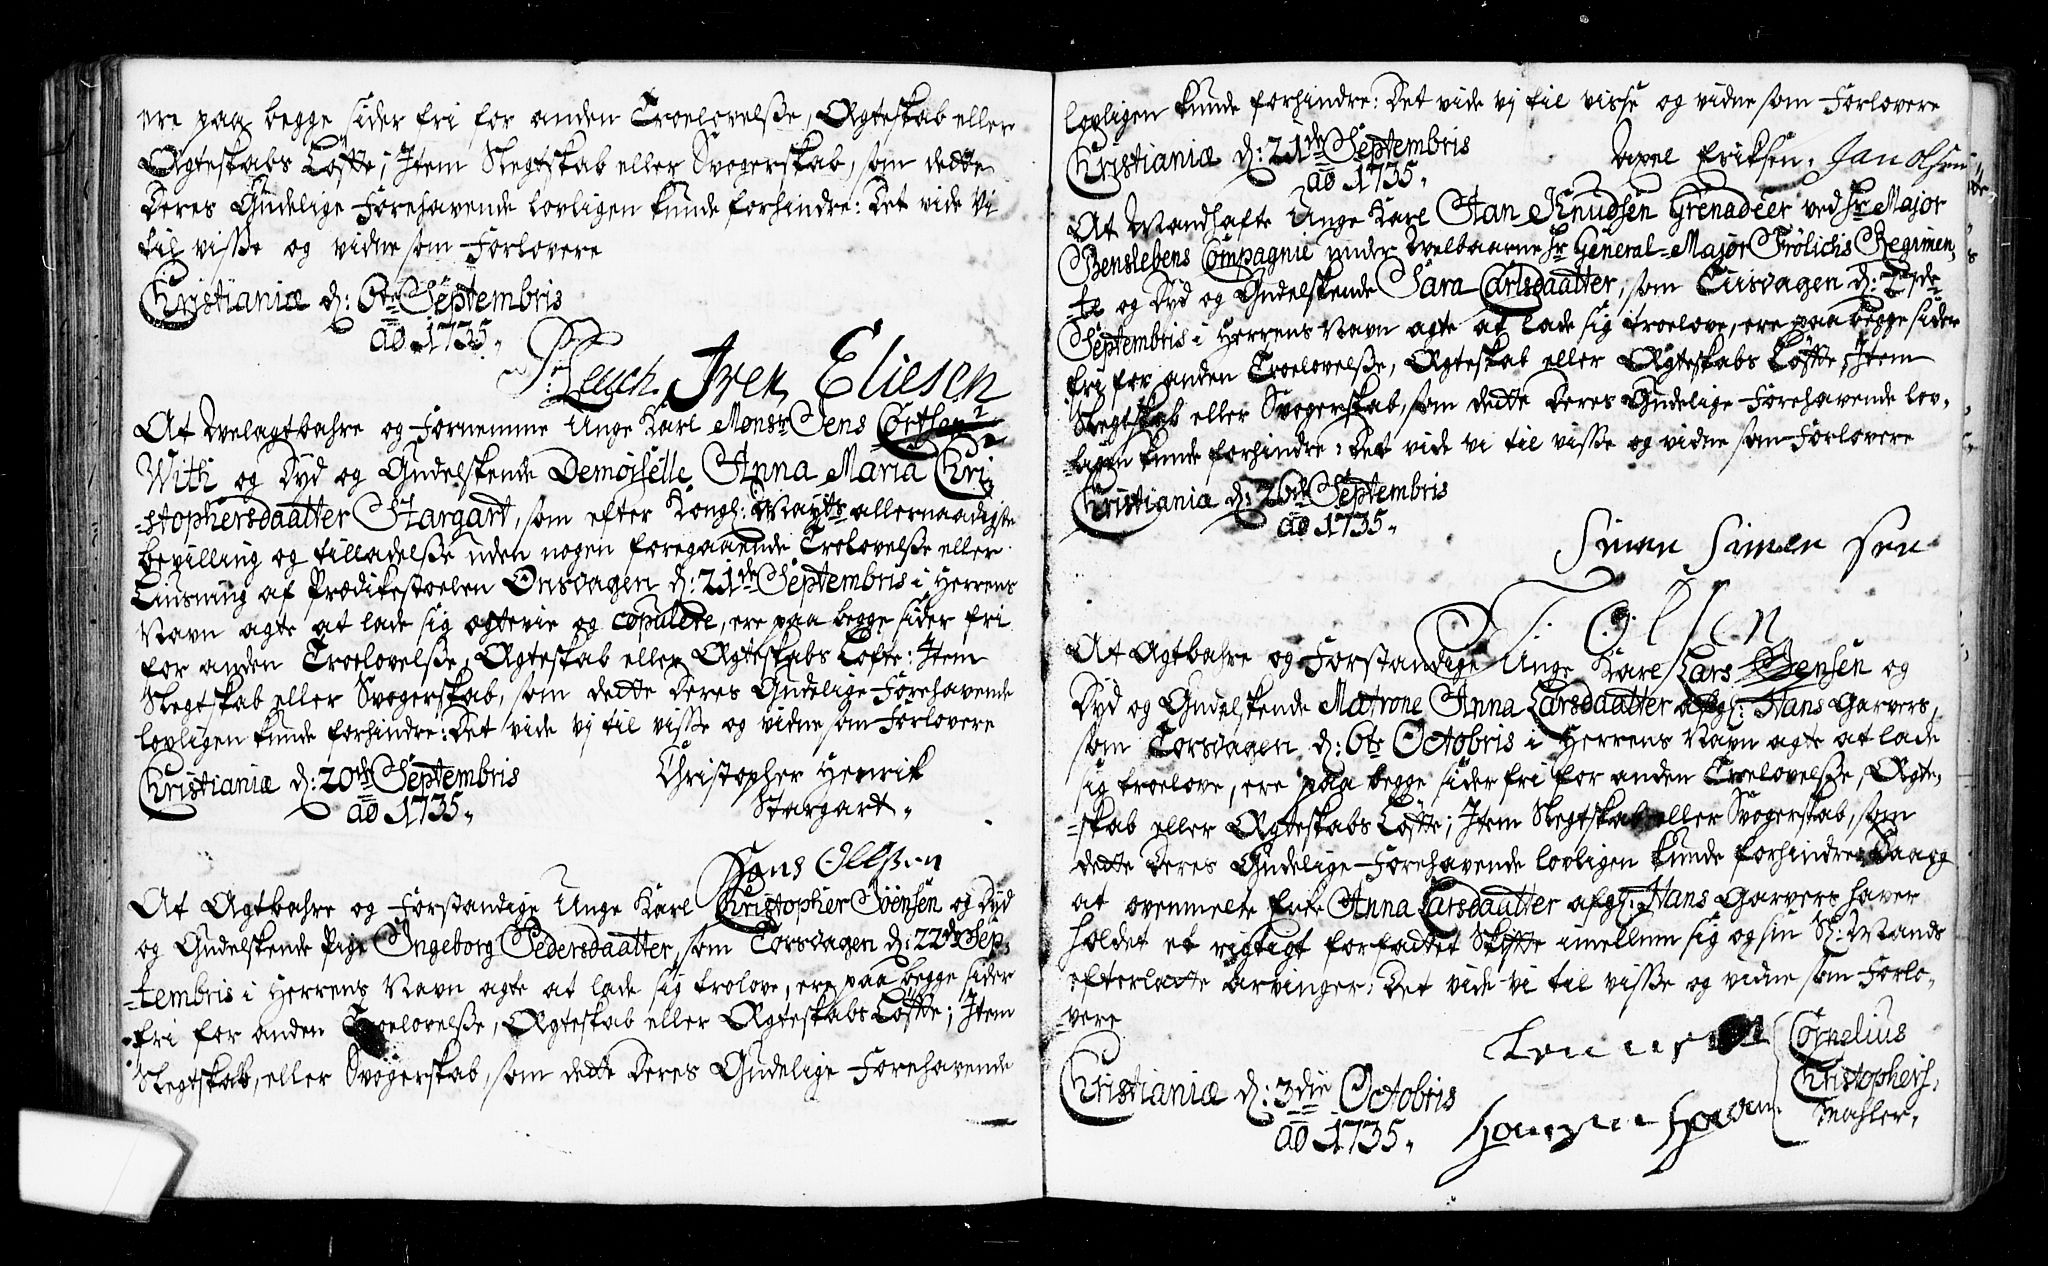 ere paa begge sider fri for anden Troelovelsße, Ægteskab eller
Ægteskabs Løfte; Item Slegtskab eller Svogerskab, som dette
Deres Gudelige Forehavende lovligen kunde forhindre: Det vide Vi
til visße og vidne som Forlovere
Christianiæ d: 6te Septembris
ao 1735.
P: Leuch. Iver Eliesen
At Velagtbahre og Fornemme Unge Karl Monsr Jens
With og Dyd og Gudelskende Demoiselle Anna Maria Chri-
-stophersdaatter Stargart, som efter Kongl: Mayts allernaadigste
bevilling og tilladelsße uden nogen foregaaende Trolovelsße eller
Liusning af Prædikestoelen Onsdagen d: 21de Septembris i Herrens
Navn agte at lade sig egtevie og copulere, ere paa begge sider fri
for anden Troelovelsße, Ægteskab eller Ægteskabs Løfte: Item
Slegtskab eller Svogerskab, som dette Deres Gudelige Forehavende
lovligen kunde forhindre: Det vide vj til visße og vidne som Forlovere
Christianiæ d: 20de Septembris
ao 1735.
Christopher Henrik
Stargart.
Hans Ollsen
At Agtbahre og Forstandige Unge Karl Christopher Sörensen og Dyd
og Gudelskende Pige Ingeborg Pedersdaatter, som Torsdagen d: 22de Sep-
-tembris i Herrens Navn agte at lade sig trolove, ere paa begge sider
fri for anden Troelovelsße, Ægteskab eller Ægteskabs Løfte; Item
Slegtskab, eller Svogerskab, som dette Deres Gudelige Forehavende
lovligen kunde forhindre: Det vide vj til visße og vidne som Forlovere
Christianiæ d: 21de Septembris
ao 1735.
Axel Eriksen. Jan Olsen
At Mandhafte Unge Karl Jan Knudsen Grenadeer ved Hr Major
Benslebens Compagnie under Velbaarne Hr General-Major Frölichs Regimen-
-te og Dyd og Gudelskende Sara Carlsdaatter, som Tiisdagen d: 27de
Septembris i Herrens Navn agte at lade sig troelove, ere paa begge sider
fri for anden Troelovelsße, Ægteskab eller Ægteskabs Løfte, Item
Slegtskab eller Svogerskab, som dette Deres Gudelige Forehavende lov-
-ligen kunde forhindre: Det vide vi til visße og vidne som Forlovere
Christianiæ d: 26de Septembris
ao 1735.
Simen Simen sen
T: Olsen
At Agtbahre og Forstandige Unge Karl Lars Jensen og
Dyd og Gudelskende Matrone Anna Larsdaatter afgl: Hans Garvers,
som Torsdagen d: 6te Octobris i Herrens Navn agte at lade
sig troelove, ere paa begge sider fri for anden Troelovelsße, Ægte-
-skab eller Ægteskabs Løfte; Item Slegtskab eller Svogerskab, som
dette Deres Gudelige Forehavende lovligen kunde forhindre; Saa og
at ovenmelte Enke Anna Larsdaatter afgl: Hans Garvers haver
holdet et rigtigt forfattet Skifte imellum sig og sin Sl: Mands
efterlatte arvinger: Det vide vi til visße og vidne som Forlo-
-vere
Christianiæ d: 3die Octobris
ao 1735.
Cornelius
Christophers:
Mahler.